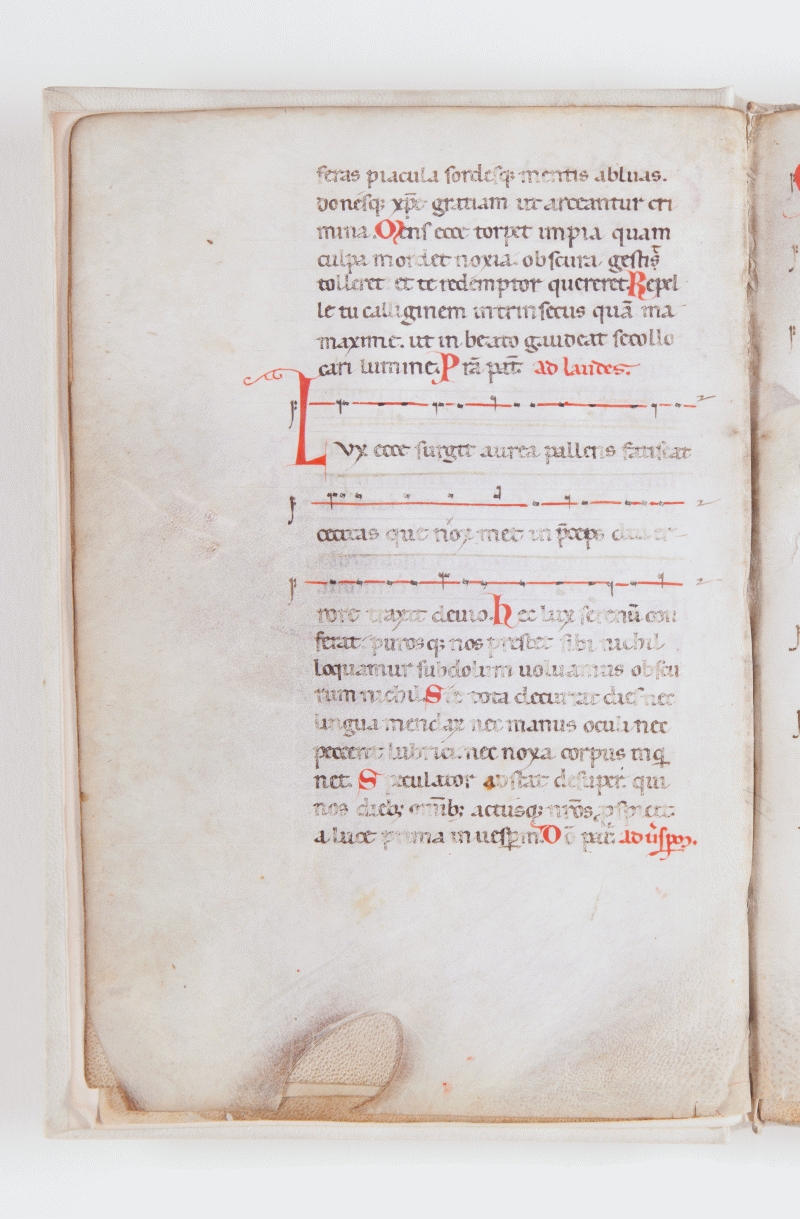 feras piacula sordesq; mentis abluas.
donesq; xp̄e gratiam ut arceantur cri
mina. Mens ecce torpet impia quam
culpa mordet noxia. obscura gestis
tolleret et te redemptor quereret. Repel
le tu caliginem intrinsecus quā ma
maxime. ut in beato gaudeat se collo
cari lumine. P rā pat̄. ad laudes.
Lux ecce surgit aurea pallens fatiscat
cecitas que nox met in p̄ceps diu er
rore traxit deuio. hec lux serenū con
ferat. purosq; nos prestet sibi nichil
loquamur subdolum uoluamus obscu
rum nichil. Sic tota decurrat dies nec
lingua mendax nec manus oculi nec
peccent lubrici. nec noxa corpus inq̄
net. Speculator astat desuper. qui
nos dieb; omīb; actusq; nr̄os p̱spicit
a luce prima in uesp̱m. D ō pat̄. ad ūsp̱os.